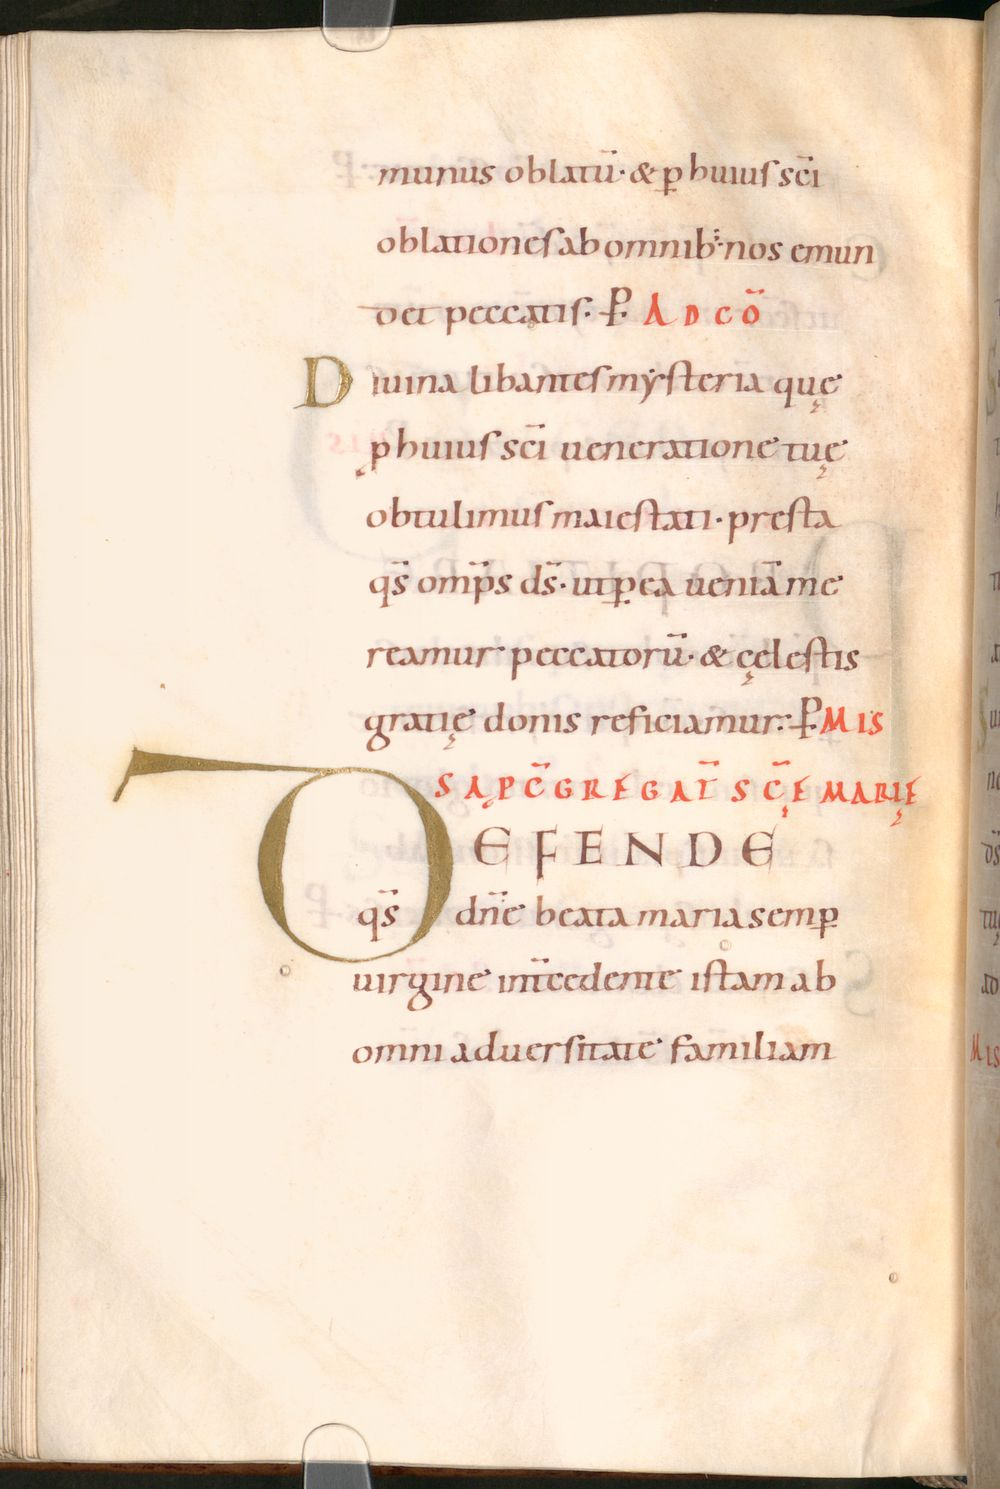 munus oblatū· & ꝑ huiuſ sc̄i
oblationeſ ab omnib; nos emun
det peccatiſ· P̵· AD CŌ
Diuina libanteſ mẏſteria quę
ꝑ huiuſ sc̄i ueneratione tuę
obtulimuſ maieſtati· preſta
qs̄ omp̄s ds̄· ut ꝑ ea ueniā me
reamur peccatorū· & cęleſtis
gratię donis reficiamur: P̵· MIS
SA P C̄GREGAT̄ SC̄Ę MARIĘ
DEFENDE
qs̄ dn̄e beata maria semꝑ
uirgine int̄cedente iſtam ab
omni aduerſitate familiam